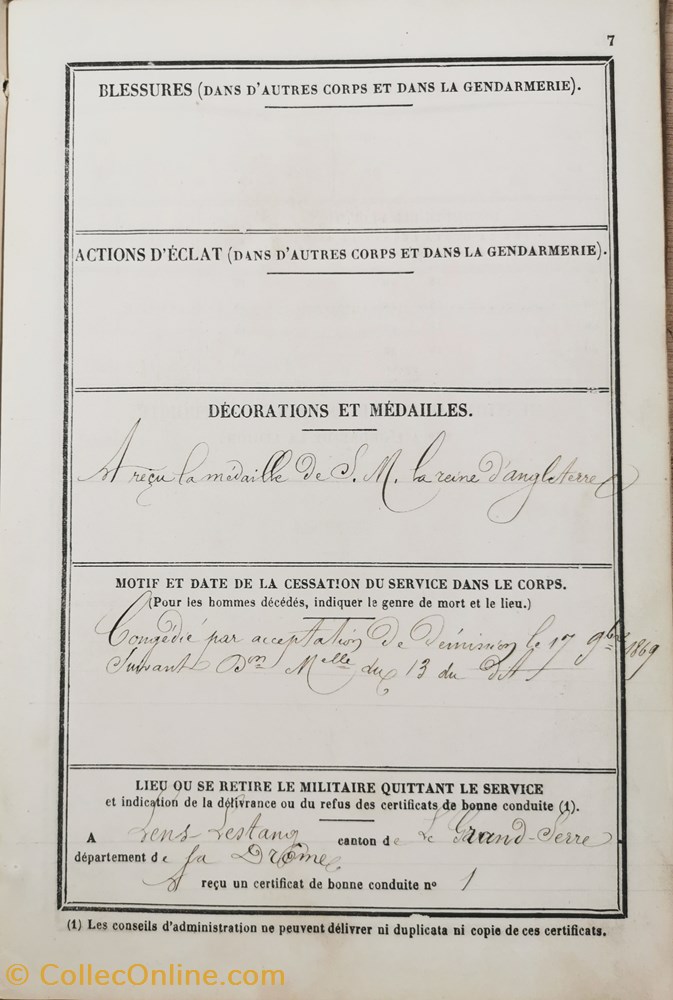 7
BLESSURES (DANS D'AUTRES CORPS ET DANS LA GENDARMERIE).
ACTIONS D'ÉCLAT (DANS D'AUTRES CORPS ET DANS LA GENDARMERIE).
DÉCORATIONS ET MÉDAILLES.
A reçu la médaille de S. M. la reine d'angleterre
MOTIF ET DATE DE LA CESSATION DU SERVICE DANS LE CORPS.
(Pour les hommes décédés, indiquer le genre de mort et le lieu.)
Congédié par acceptation de démission le 17 9bre 1869
Suivant Don Melle du 13 du dit
LIEU OU SE RETIRE LE MILITAIRE QUITTANT LE SERVICE
et indication de la délivrance ou du refus des certificats de bonne conduite (1).
A Lens Lestang canton de Le Grand-Serre
département de la Drôme
A reçu un certificat de bonne conduite nº 1
(1) Les conseils d'administration ne peuvent délivrer ni duplicata ni copie de ces certificats.
© CollecOnline.com